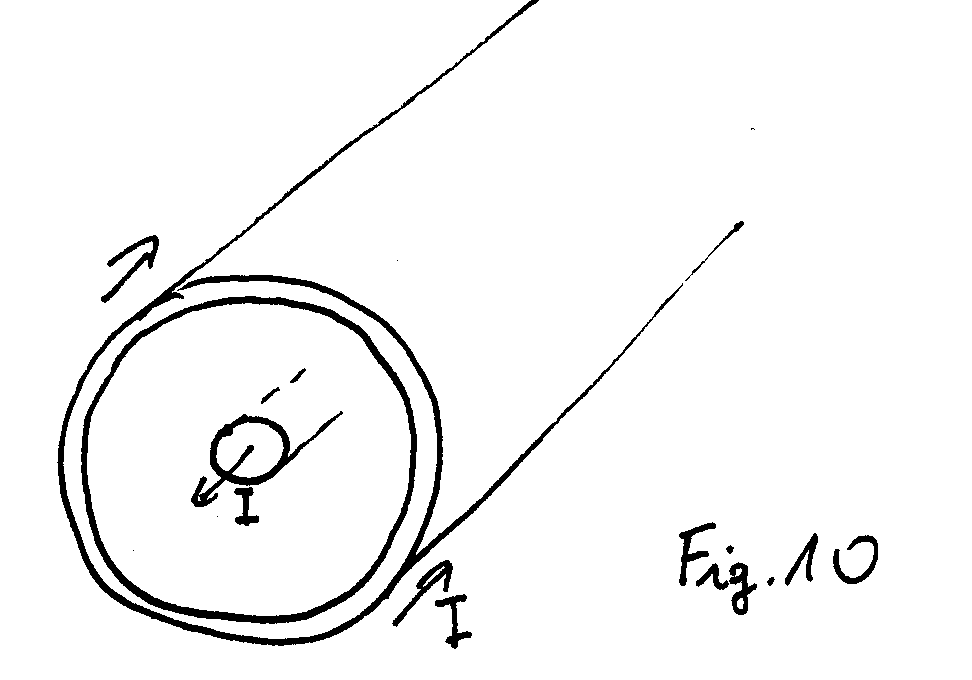 I
I
Fig. 10